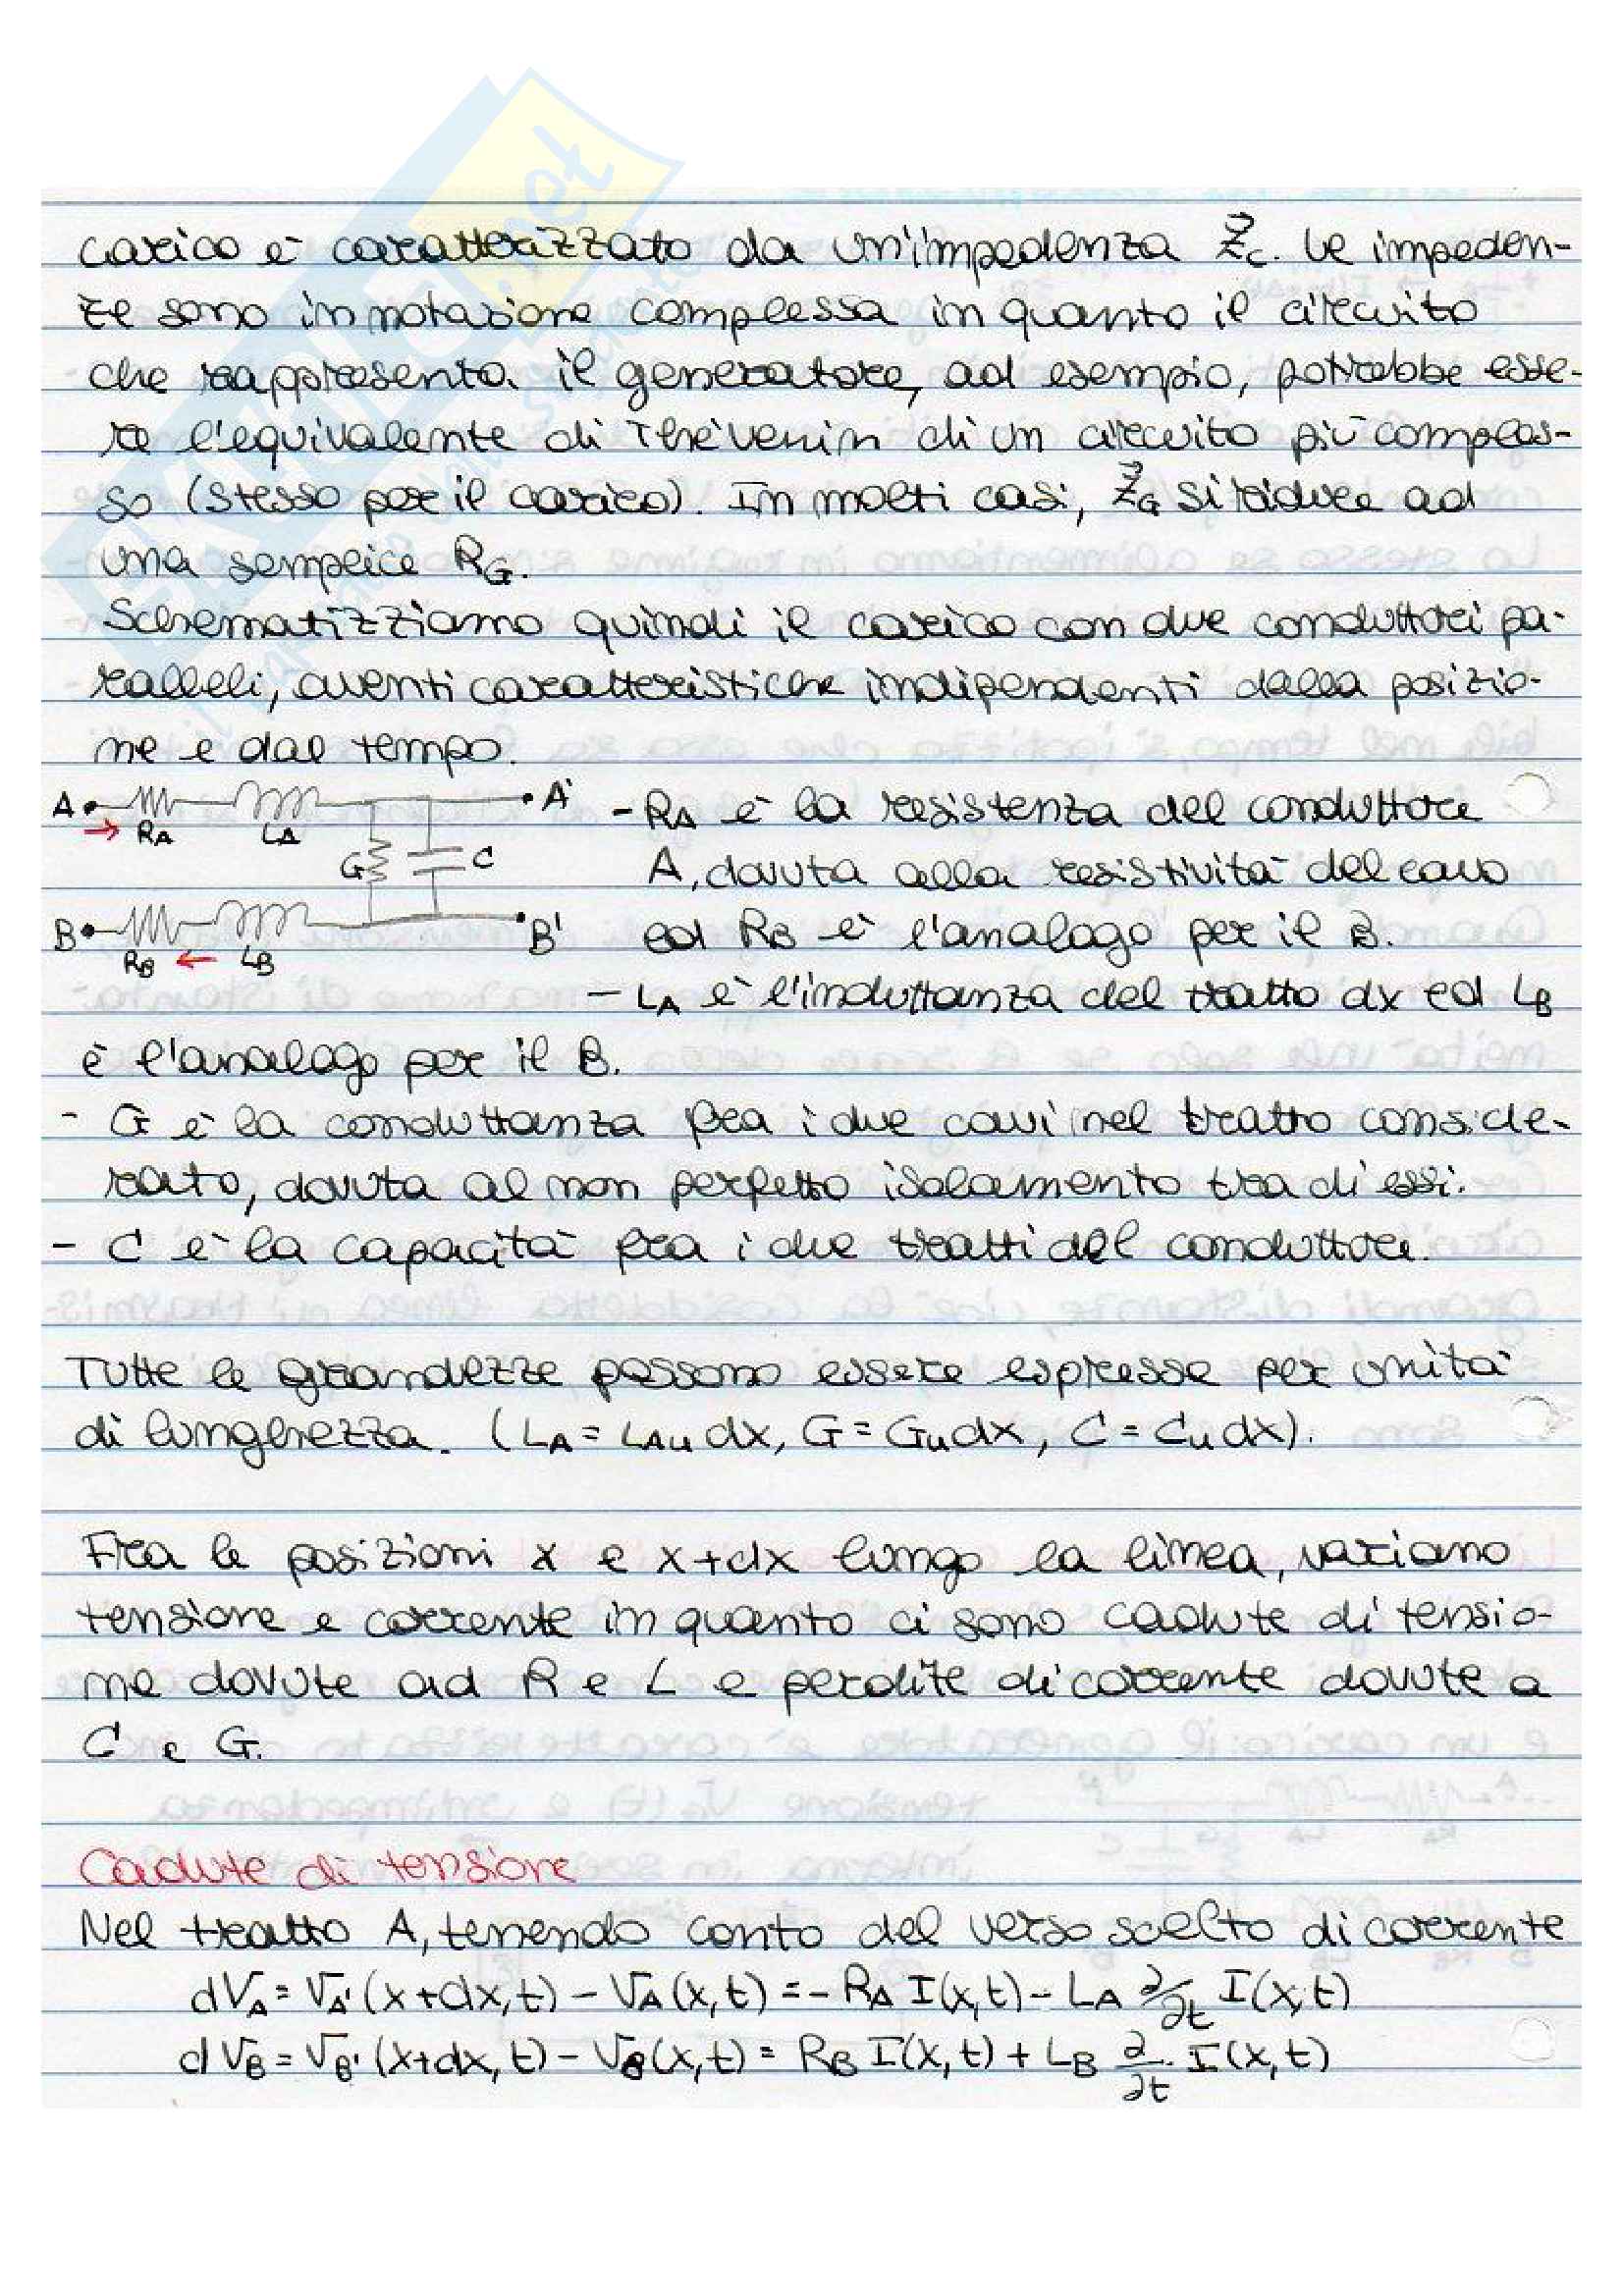 carico è caratterizzato da un'impedenza Z⃗c. Le impeden-
ze sono in notazione complessa in quanto il circuito
che rappresenta il generatore, ad esempio, potrebbe esse-
re l'equivalente di Thévenin di un circuito più comples-
so (stesso per il carico). In molti casi, Z⃗G si riduce ad
una semplice RG.
Schematizziamo quindi il carico con due conduttori pa-
ralleli, aventi caratteristiche indipendenti dalla posizio-
ne e dal tempo.
A RA LA A'
G C
B RB LB B'
- RA è la resistenza del conduttore
A, dovuta alla resistività del cavo
ed RB è l'analogo per il B.
- LA è l'induttanza del tratto dx ed LB
è l'analogo per il B.
- G è la conduttanza fra i due cavi nel tratto conside-
rato, dovuta al non perfetto isolamento tra di essi.
- C è la capacità fra i due tratti del conduttore.
Tutte le grandezze possono essere espresse per unità
di lunghezza. (LA = LAu dx, G = Gu dx, C = Cu dx).
Fra le posizioni x e x+dx lungo la linea, variano
tensione e corrente in quanto ci sono cadute di tensio-
ne dovute ad R e L e perdite di corrente dovute a
C e G.
Cadute di tensione
Nel tratto A, tenendo conto del verso scelto di corrente
dVA = VA' (x+dx,t) - VA (x,t) = - RA I(x,t) - LA ∂/∂t I(x,t)
dVB = VB' (x+dx,t) - VB (x,t) = RB I(x,t) + LB ∂/∂t I(x,t)